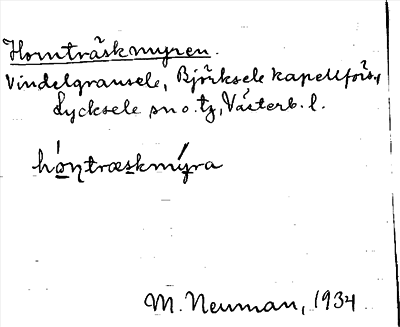 Hornträskmyren.
Vindelgransele, Björksele kapellförs.,
Lycksele sn o. tg, Västerb. l.
hǫ́ṇtræskmý́ra
M. Neuman, 1934